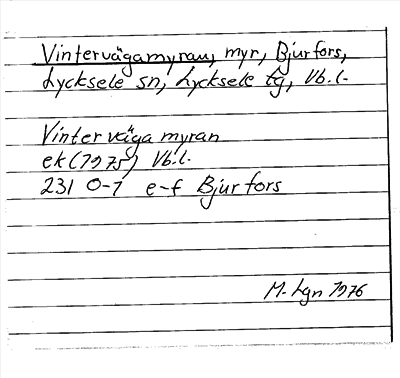 Vintervägamyran, myr, Bjurfors,
Lycksele sn, Lycksele tg, Vb.l.
Vinterväga myran
ek (1975) Vb.l.
231 0-1 e-f Bjurfors
M. Lgn 1976